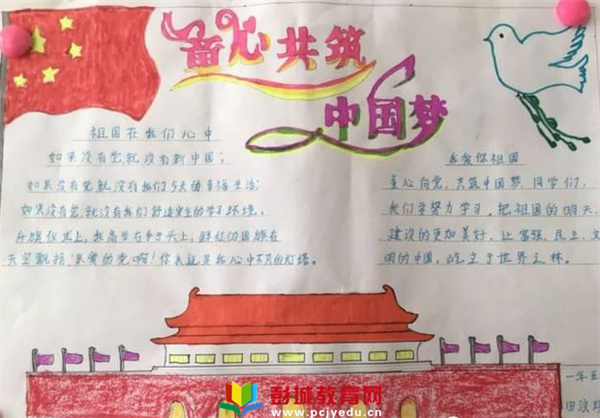 童心共筑
中国梦
祖国在我们心中
如果没有党,就没有新中国;
如果没有党,就没有我们今天的幸福生活;
如果没有党,就没有我们舒适安全的学习环境。
升旗仪式上,我高举右手于头上,鲜红的国旗在
天空飘扬,亲爱的党啊!你永远是我心中不灭的灯塔。
我爱你祖国
童心向党,共筑中国梦,同学们,
我们要努力学习,把祖国的明天
建设的更加美好,让富强、民主、文
明的中国,屹立于世界之林。
一年五
彭城教育网
www.pcjyedu.cn